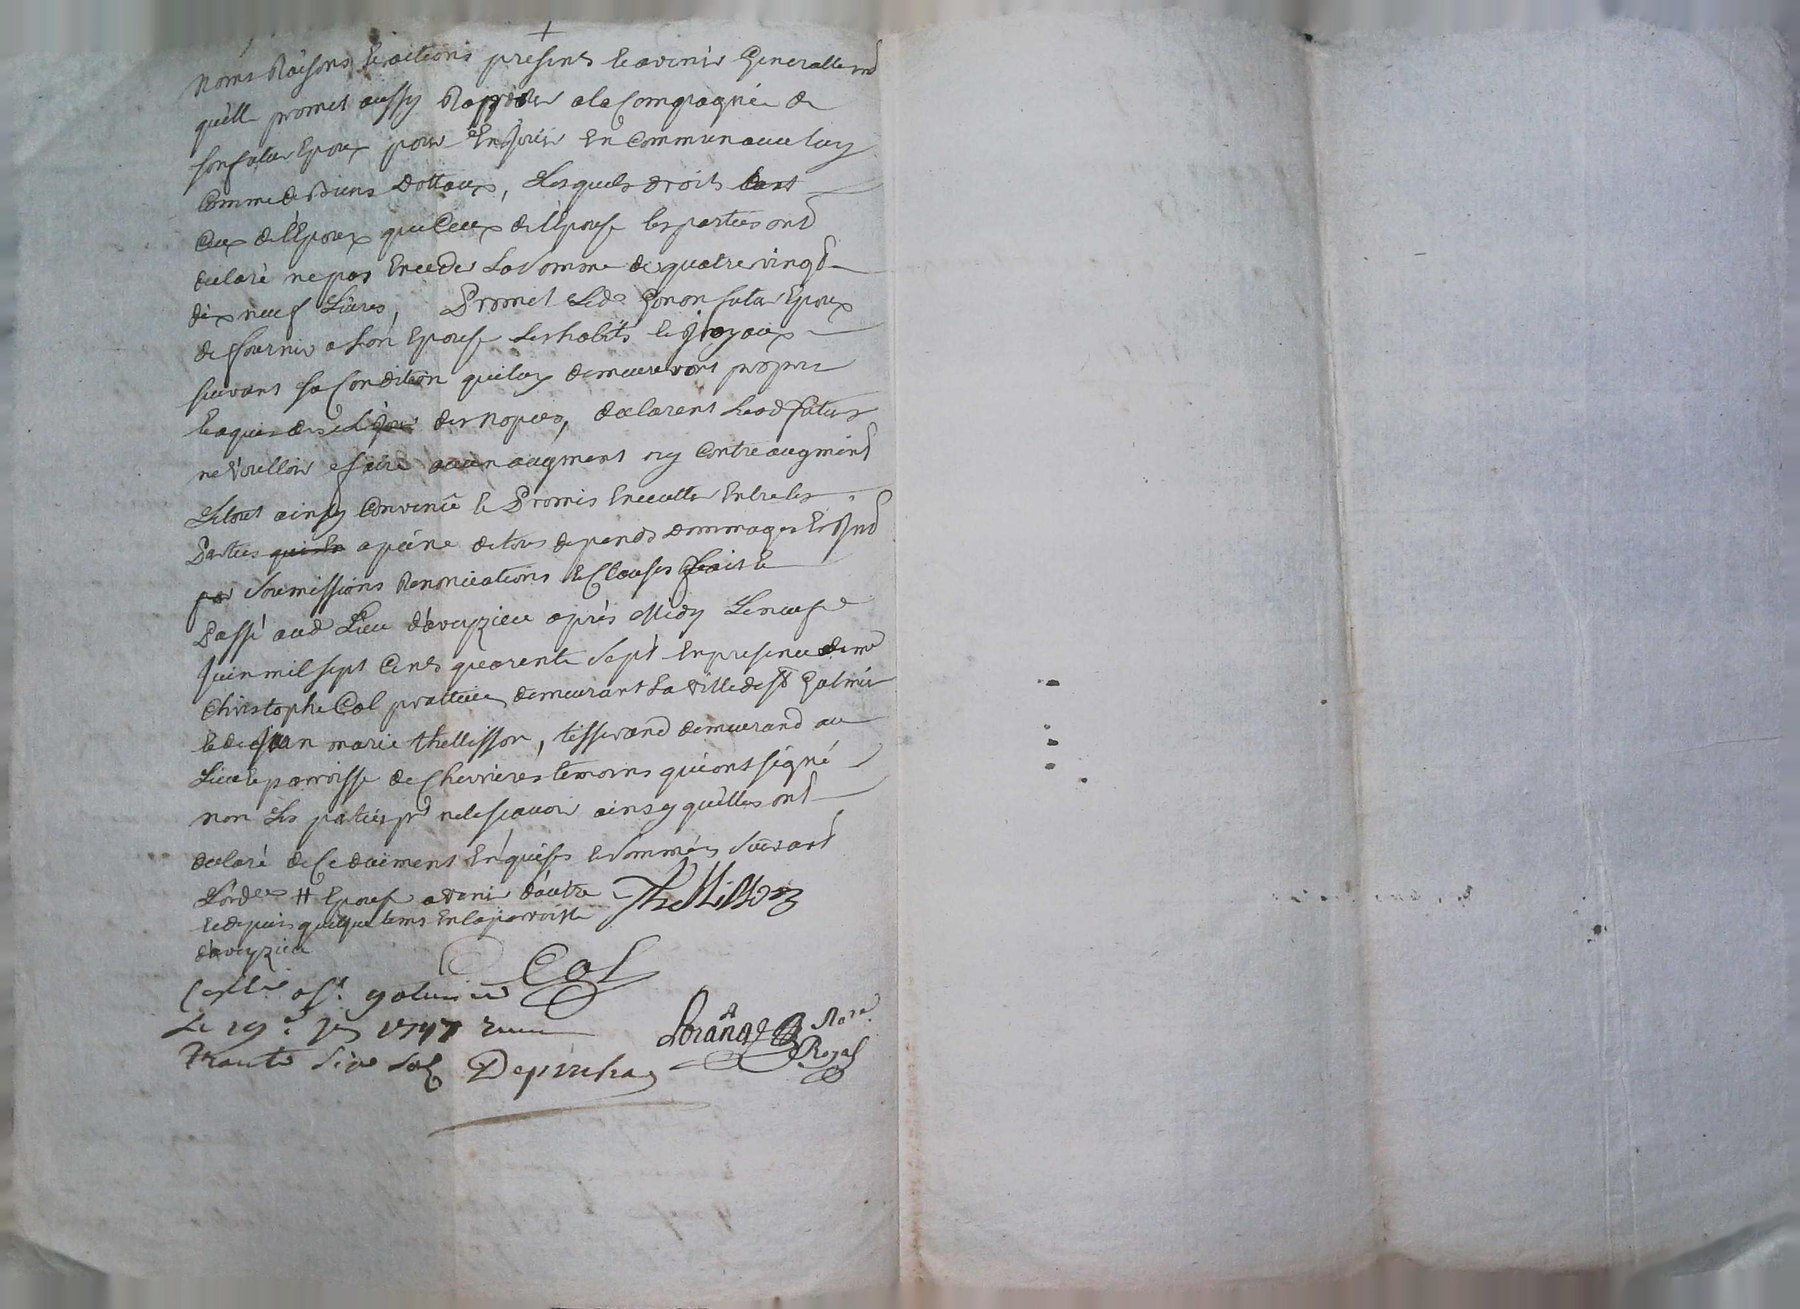 noms Raisons & actions presents & avenir Generallem<sup>t</sup>
quell promet aussy Rapporter a la Compagnie de
son futur Epoux pour En Jouir En Commun avec luy
Comme de Biens Dottaux, Lesquels droits tant
Ceux de l'Epoux que Ceux de l'Epouse les parties ont
declaré ne pas Exceder La Somme de quatre vingt
dix neuf Livres, Promet Led. Gonon futur Epoux
de fournir a Son Epouse Les habits & Joyaux
suivant sa Condition qui luy demeureront propres
& aquis des le Jour des Nopces, declarent Lesd futurs
ne Vouloir faire aucun augment ny Contre augment
Le tout ainsy Convenu & Promis Executter Entre les
Parties qui En a peine de tous depends dommages &
par Soumissions Renonciations & Clauses fait &
Passé aud Lieu d'aveyzieu après Midy Le neuf
Juin mil sept Cents quarente Sept En presence de m<sup>e</sup>
Christophe Col pratticien demeurant La Ville de S<sup>t</sup> Galmier
& de Jean marie thellisson, tisserand demeurand au
Lieu & parroisse de Chevrieres temoins qui ont signé
non Les parties p<sup>r</sup> ne le scavoir ainsy qu'elles ont
declaré de Ce duement Enquises & Sommées Suivant
L'ord<sup>ce</sup> # Epouse a venir d'autre
& depuis quelque tems En la parroisse
d'aveyzieu
Thellisson
Col
Con<sup>llé</sup> a S<sup>t</sup>. galmier
Le 19<sup>e</sup> 1747 Reçu
Trante Six Sols
Lorange No<sup>re</sup>
Royal